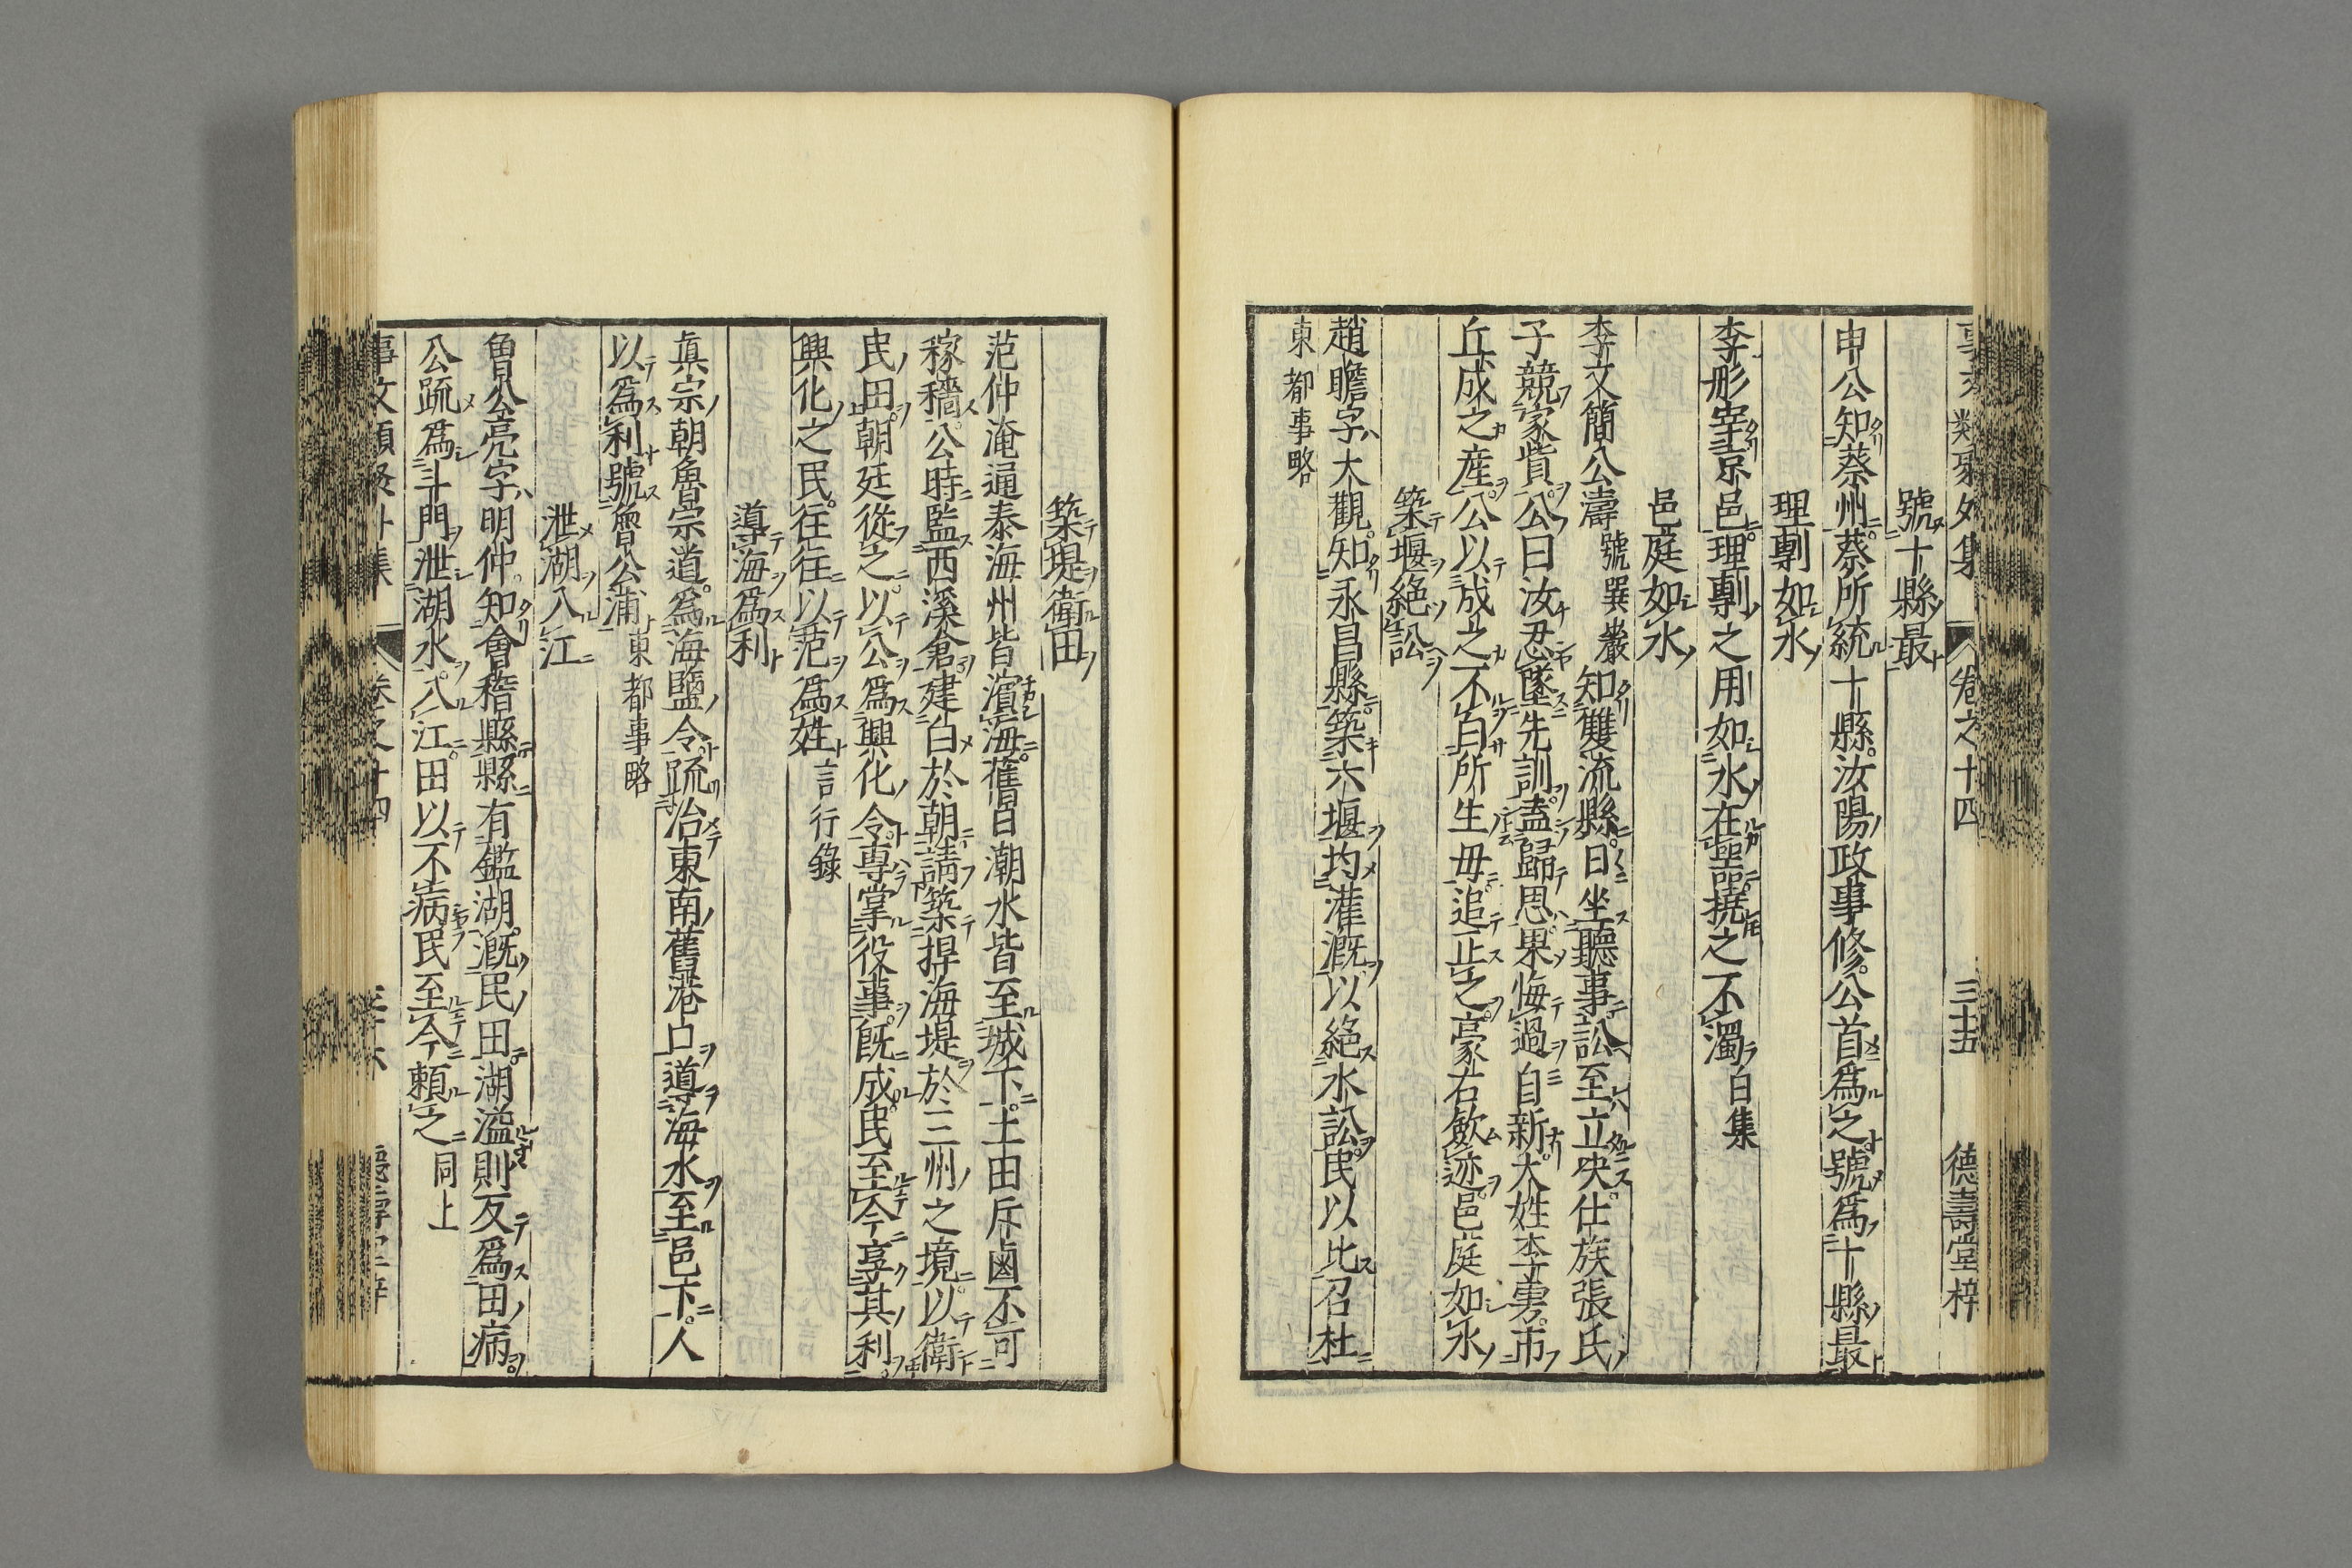 事文類聚外集 卷之十四 三十五 德壽堂梓
號十縣最
申公知蔡州蔡所統十縣汝陽政事修公首爲之號爲十縣最
理劇如水
李彤宰京邑理劇之用如水在器撓之不濁 白集
邑庭如水
李文簡公濤 號巽巖 知雙流縣日坐聽事訟至立决仕族張氏
子競家貲公曰汝忍墜先訓盍歸思果悔過自新大姓李勇市
丘成之産公以成之不白所生毋追正之豪右歛迹邑庭如水
築堰絶訟
趙瞻字大觀知永昌縣築六堰均灌漑以絶水訟民以比召杜
東都事略
築堤衛田
范仲淹通泰海州皆濱海舊日潮水皆至城下土田斥鹵不可
稼穡公時監西溪倉建白於朝請築捍海堤於三州之境以衛
民田朝廷從之以公爲興化令專掌役事旣成民至今享其利
興化之民往往以范爲姓 言行錄
導海爲利
真宗朝魯宗道爲海鹽令疏治東南舊港口導海水至邑下人
以爲利號魯公浦 東都事略
泄湖入江
魯公亮字明仲知會稽縣縣有鑑湖漑民田湖溢則反爲田病
公疏爲斗門泄湖水入江田以不病民至今頼之 同上
事文類聚外集 卷之十四